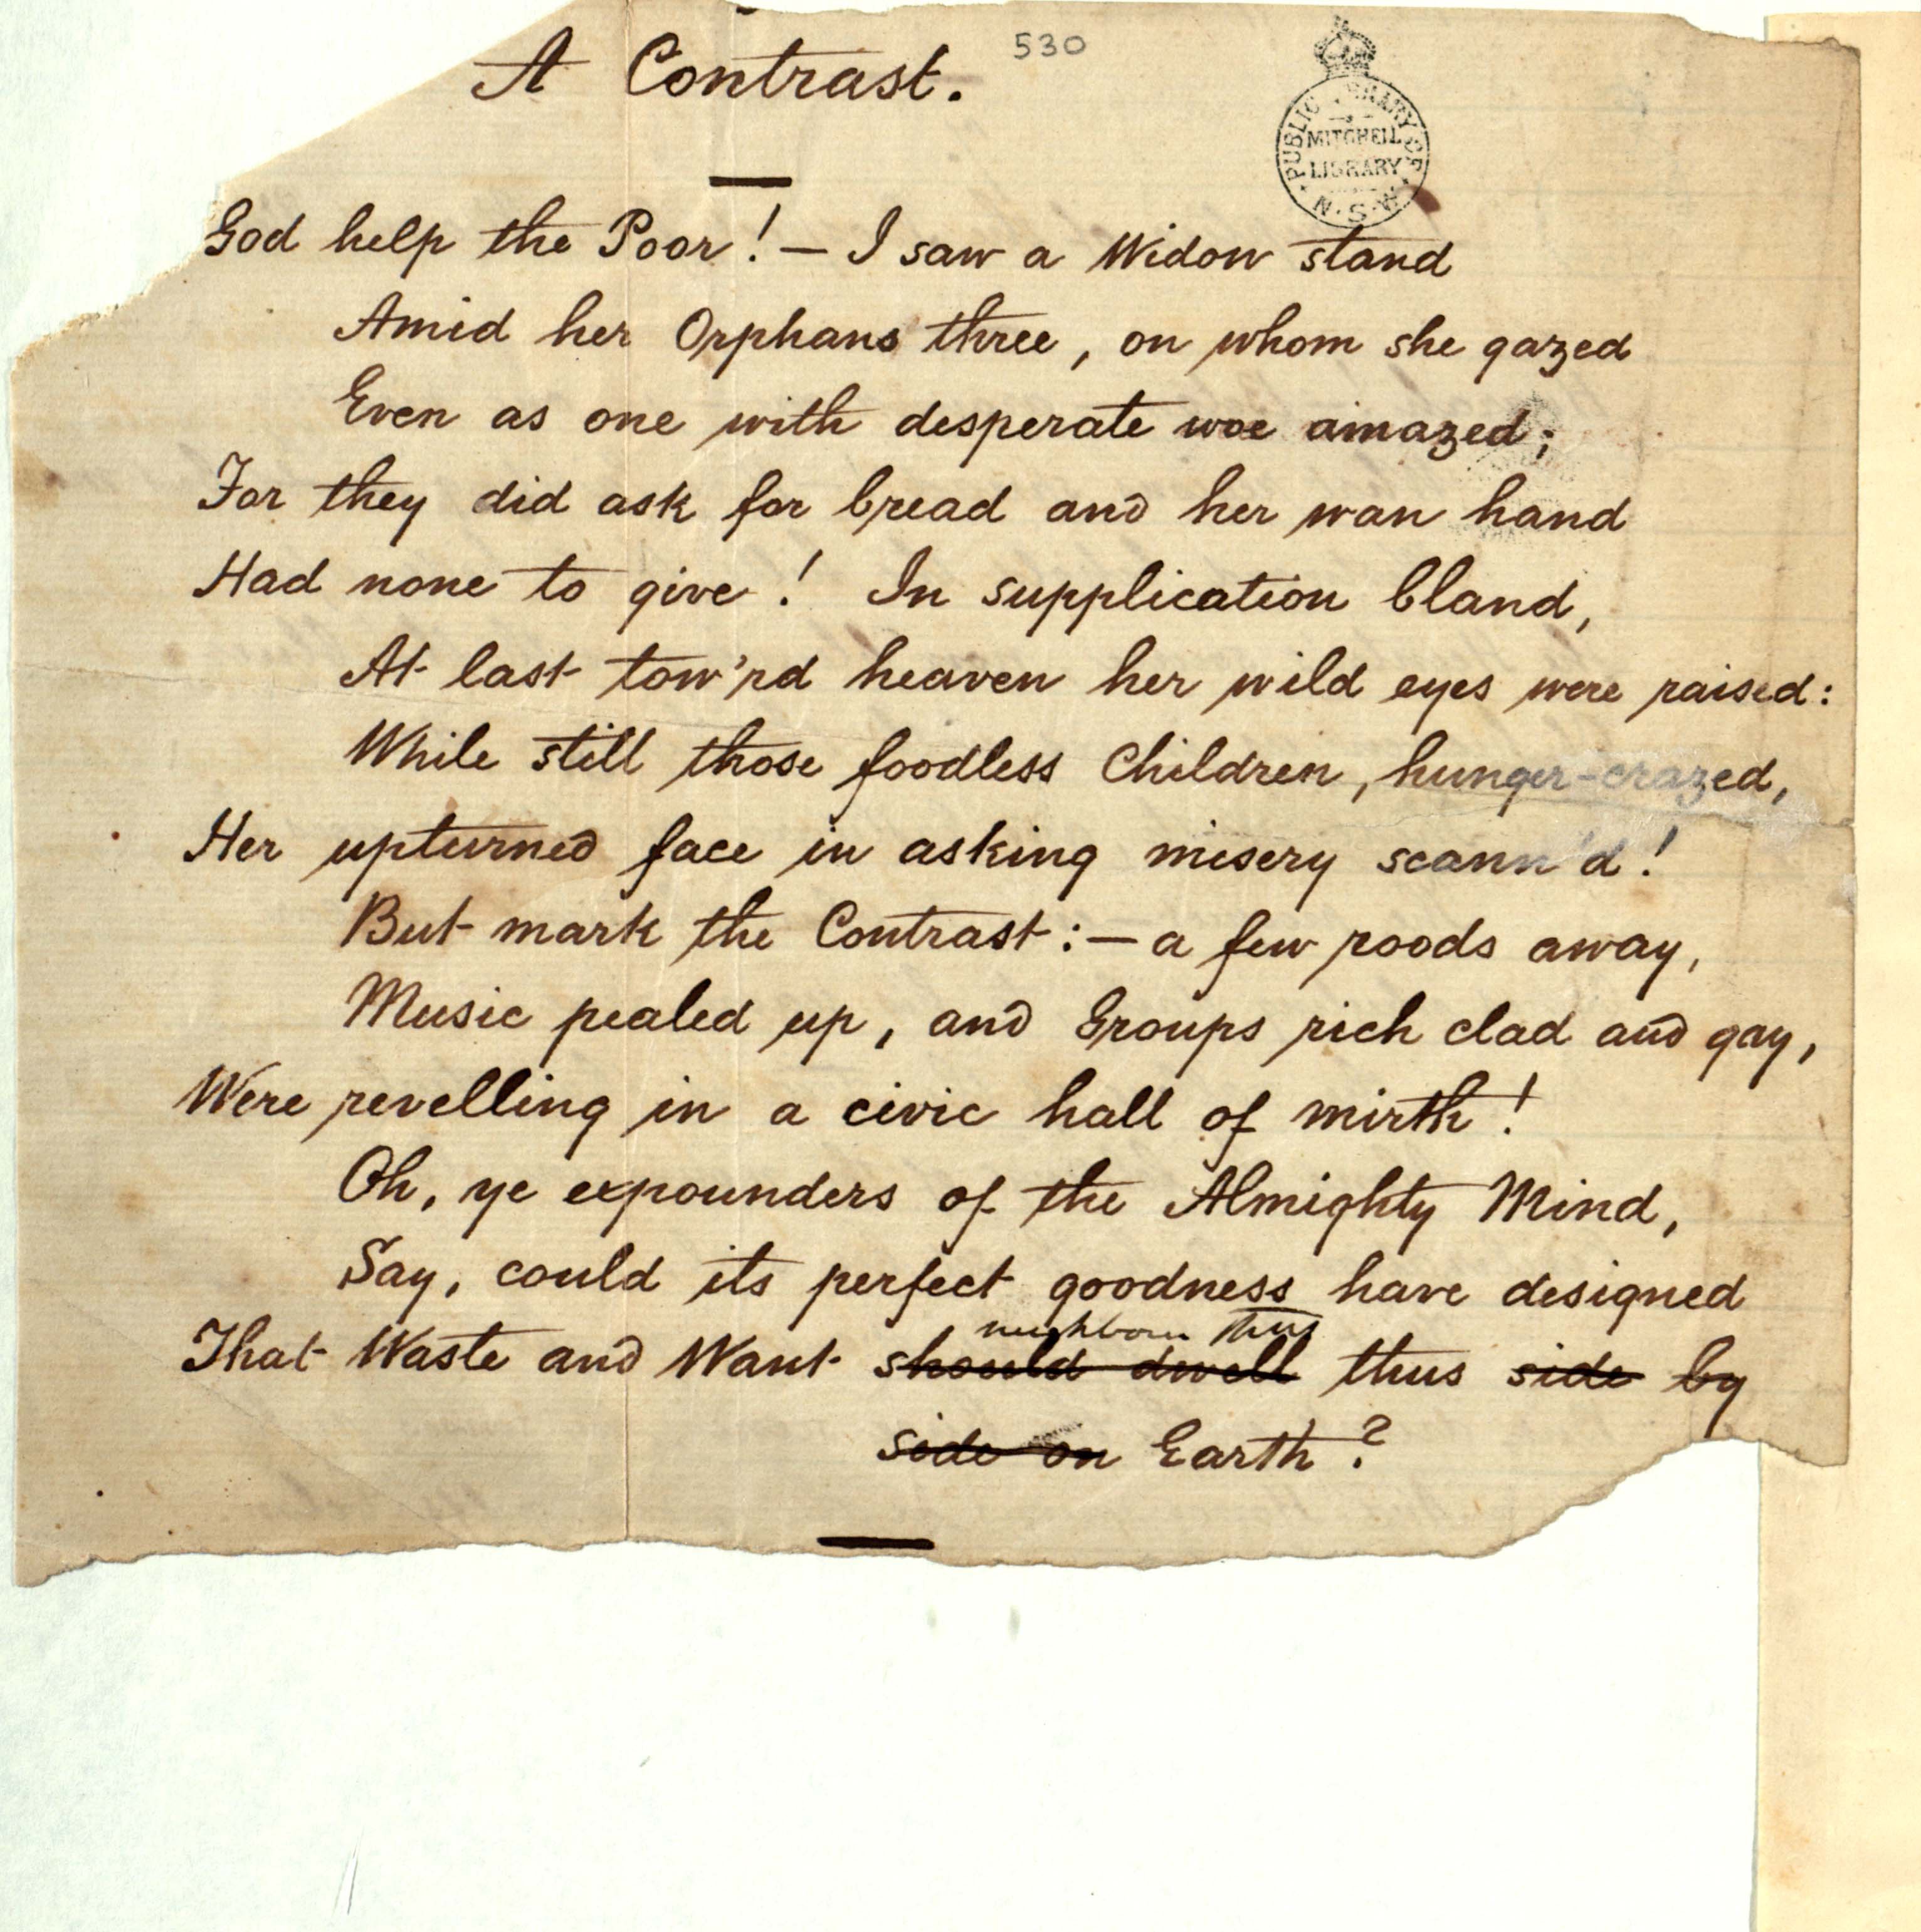 A Contrast.
530
PUBLIC LIBRARY OF N.S.W.
MITCHELL
LIBRARY
God help the Poor! — I saw a Widow stand
Amid her Orphans three, on whom she gazed
Even as one with desperate woe amazed;
For they did ask for bread and her wan hand
Had none to give! In supplication bland,
At last tow'rd heaven her wild eyes were raised:
While still those foodless Children, hunger-crazed,
Her upturned face in asking misery scann'd!
But mark the Contrast:— a few roods away,
Music pealed up, and Groups rich clad and gay,
Were revelling in a civic hall of mirth!
Oh, ye expounders of the Almighty Mind,
Say, could its perfect goodness have designed
neighbour thus
That Waste and Want should dwell thus side by
side on Earth?